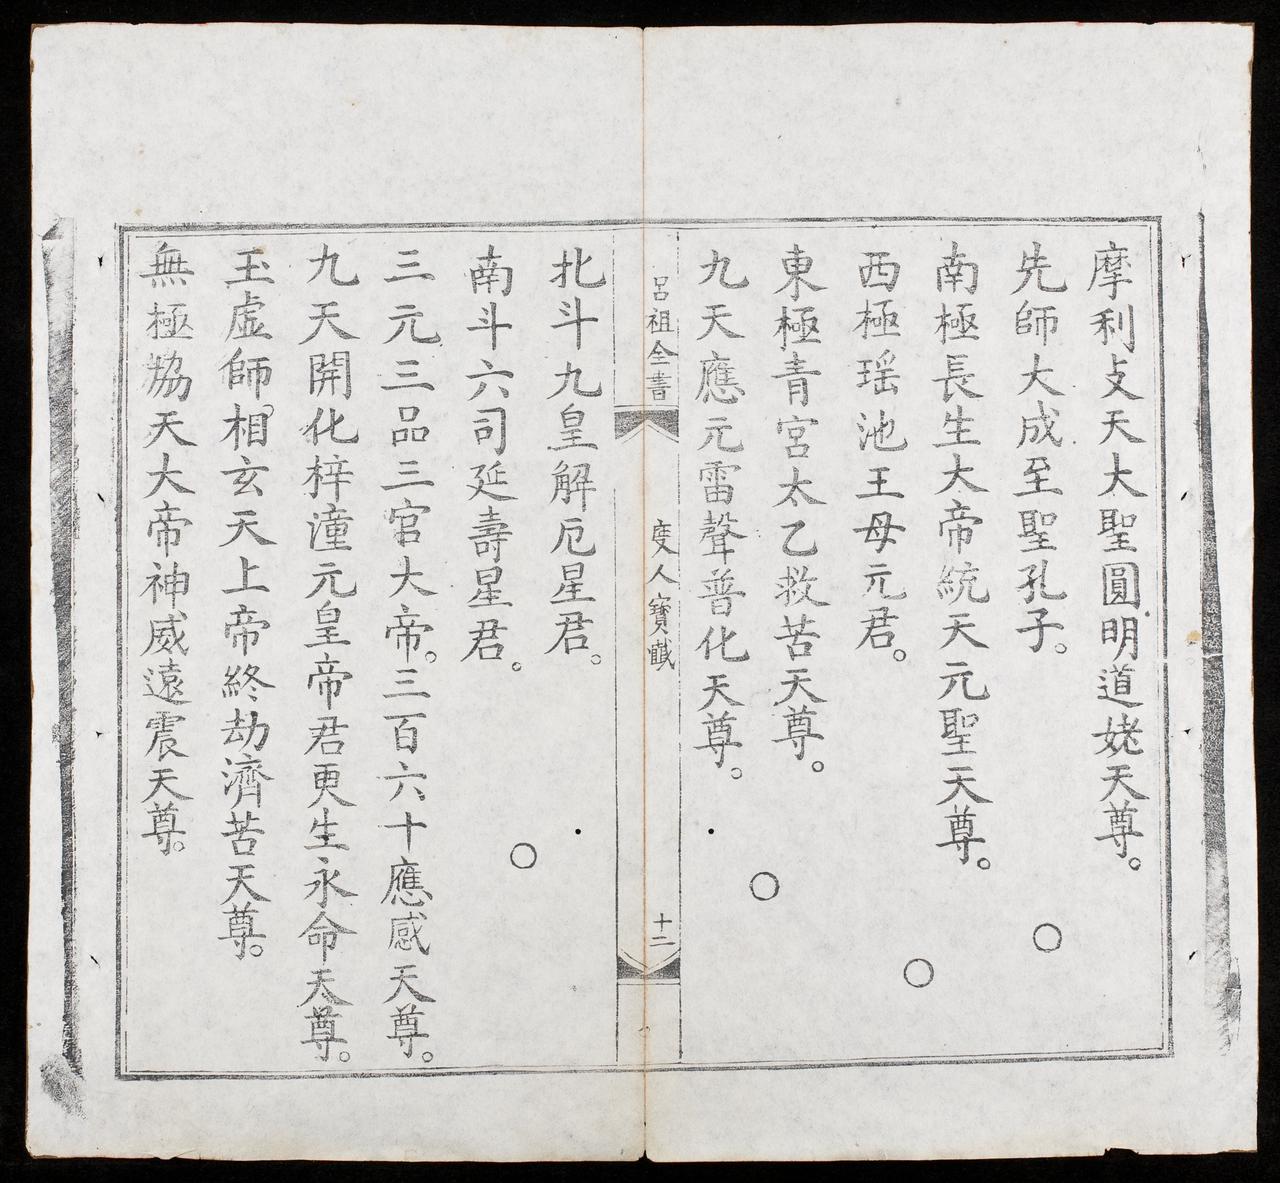 摩利攴天大聖圓明道姥天尊。
先師大成至聖孔子。
南極長生大帝統天元聖天尊。
西極瑶池王母元君。
東極青宮太乙救苦天尊。
九天應元雷聲普化天尊。
呂祖全書
度人寶懺
十二
北斗九皇解厄星君。
南斗六司延壽星君。
三元三品三官大帝。三百六十應感天尊。
九天開化梓潼元皇帝君更生永命天尊。
玉虛師相玄天上帝終劫濟苦天尊。
無極協天大帝神威遠震天尊。